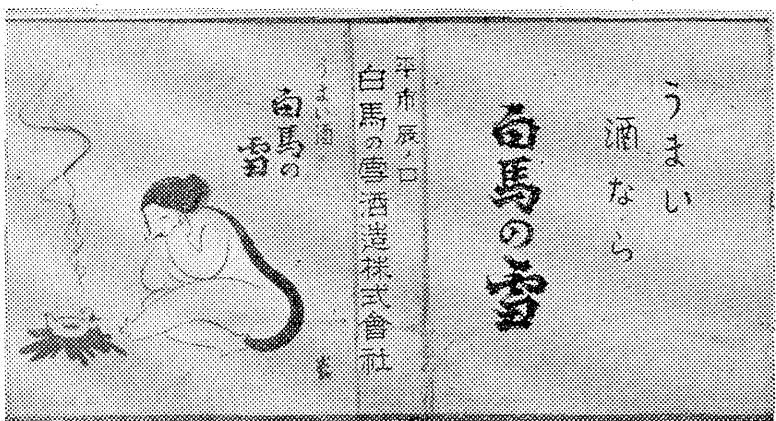 うまい
酒なら
白馬の雪
平市辰ノ口
白馬の雪酒造株式會社
うまい酒
白馬の
雪